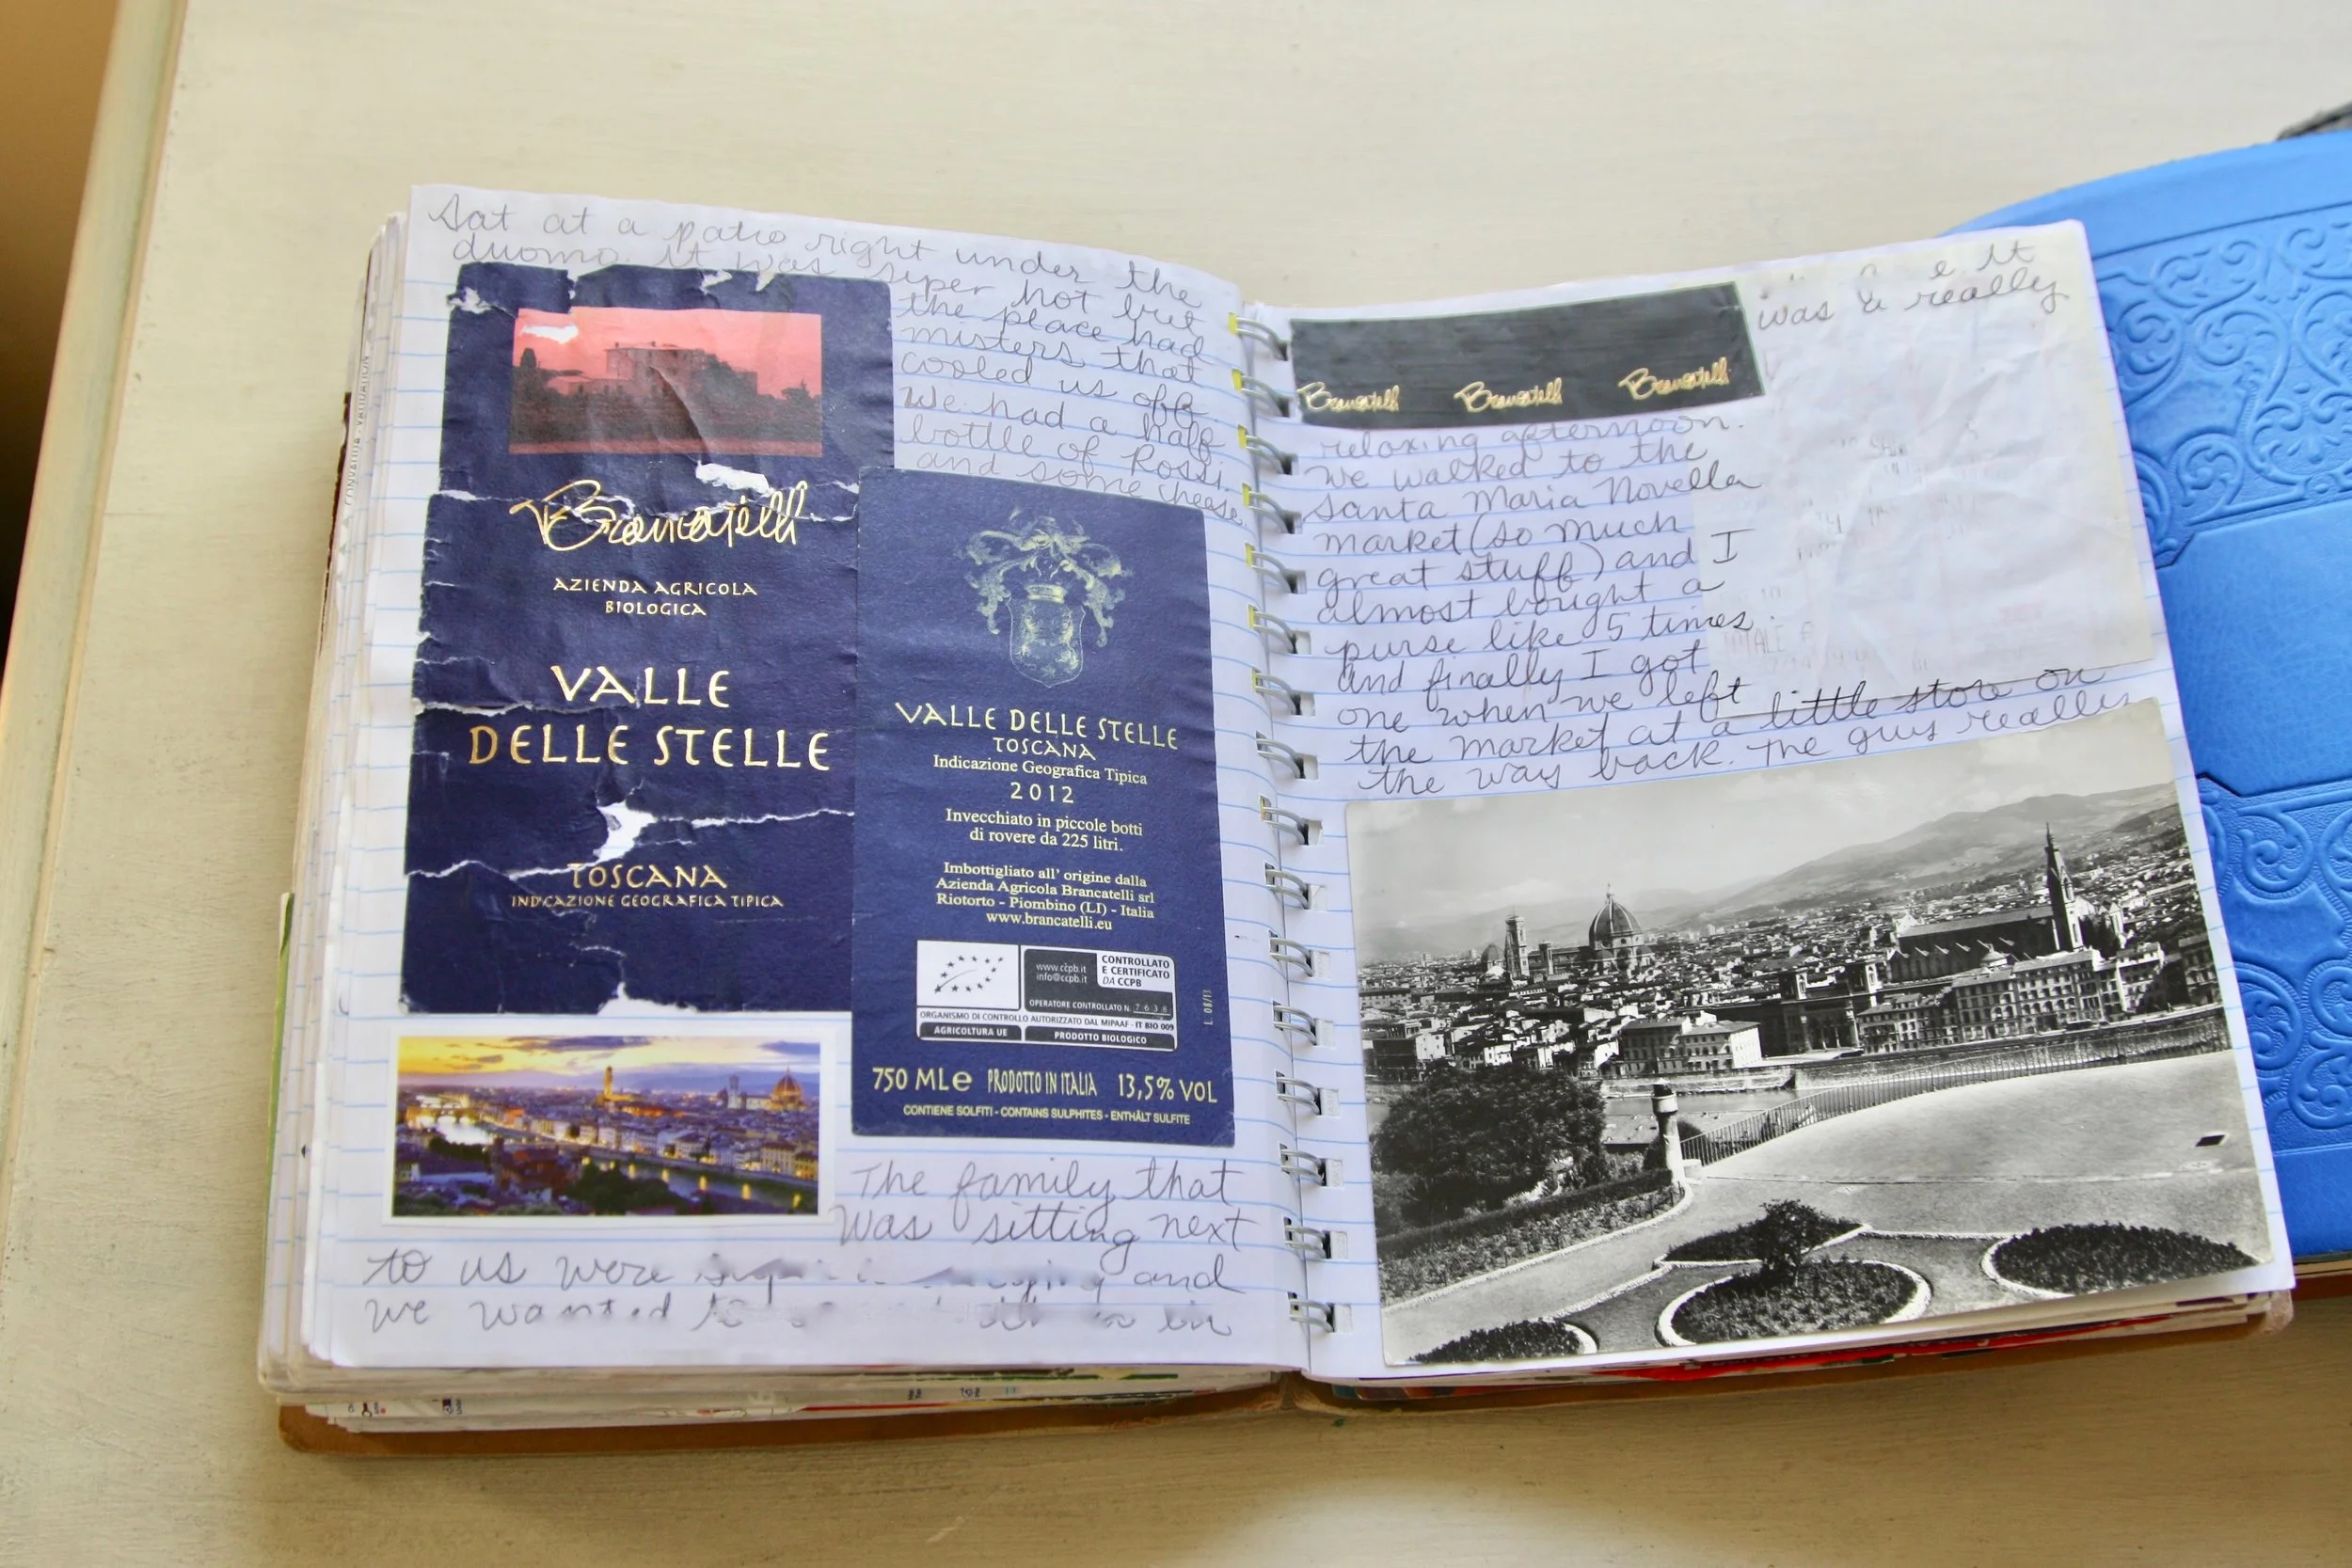 Sat at a patio right under the
duomo. It was super hot but
the place had
misters that
cooled us off
We had a half
bottle of Rossi
and some cheese.
Brancatelli
AZIENDA AGRICOLA
BIOLOGICA
VALLE
DELLE STELLE
TOSCANA
INDICAZIONE GEOGRAFICA TIPICA
VALLE DELLE STELLE
TOSCANA
Indicazione Geografica Tipica
2012
Invecchiato in piccole botti
di rovere da 225 litri.
Imbottigliato all' origine dalla
Azienda Agricola Brancatelli srl
Riotorto - Piombino (LI) - Italia
www.brancatelli.eu
www.ccpb.it
info@ccpb.it
CONTROLLATO
E CERTIFICATO
DA CCPB
OPERATORE CONTROLLATO N. 7638
ORGANISMO DI CONTROLLO AUTORIZZATO DAL MIPAAF - IT BIO 009
AGRICOLTURA UE
PRODOTTO BIOLOGICO
750 ML e PRODOTTO IN ITALIA 13,5% VOL
CONTIENE SOLFITI - CONTAINS SULPHITES - ENTHÄLT SULFITE
The family that
was sitting next
to us were and
we wanted
It
was a really
Brancatelli Brancatelli Brancatelli
relaxing afternoon.
We walked to the
Santa Maria Novella
market (so much
great stuff) and I
almost bought a
purse like 5 times
and finally I got
one when we left
the market at a little store on
the way back. The guy really
TOTALE